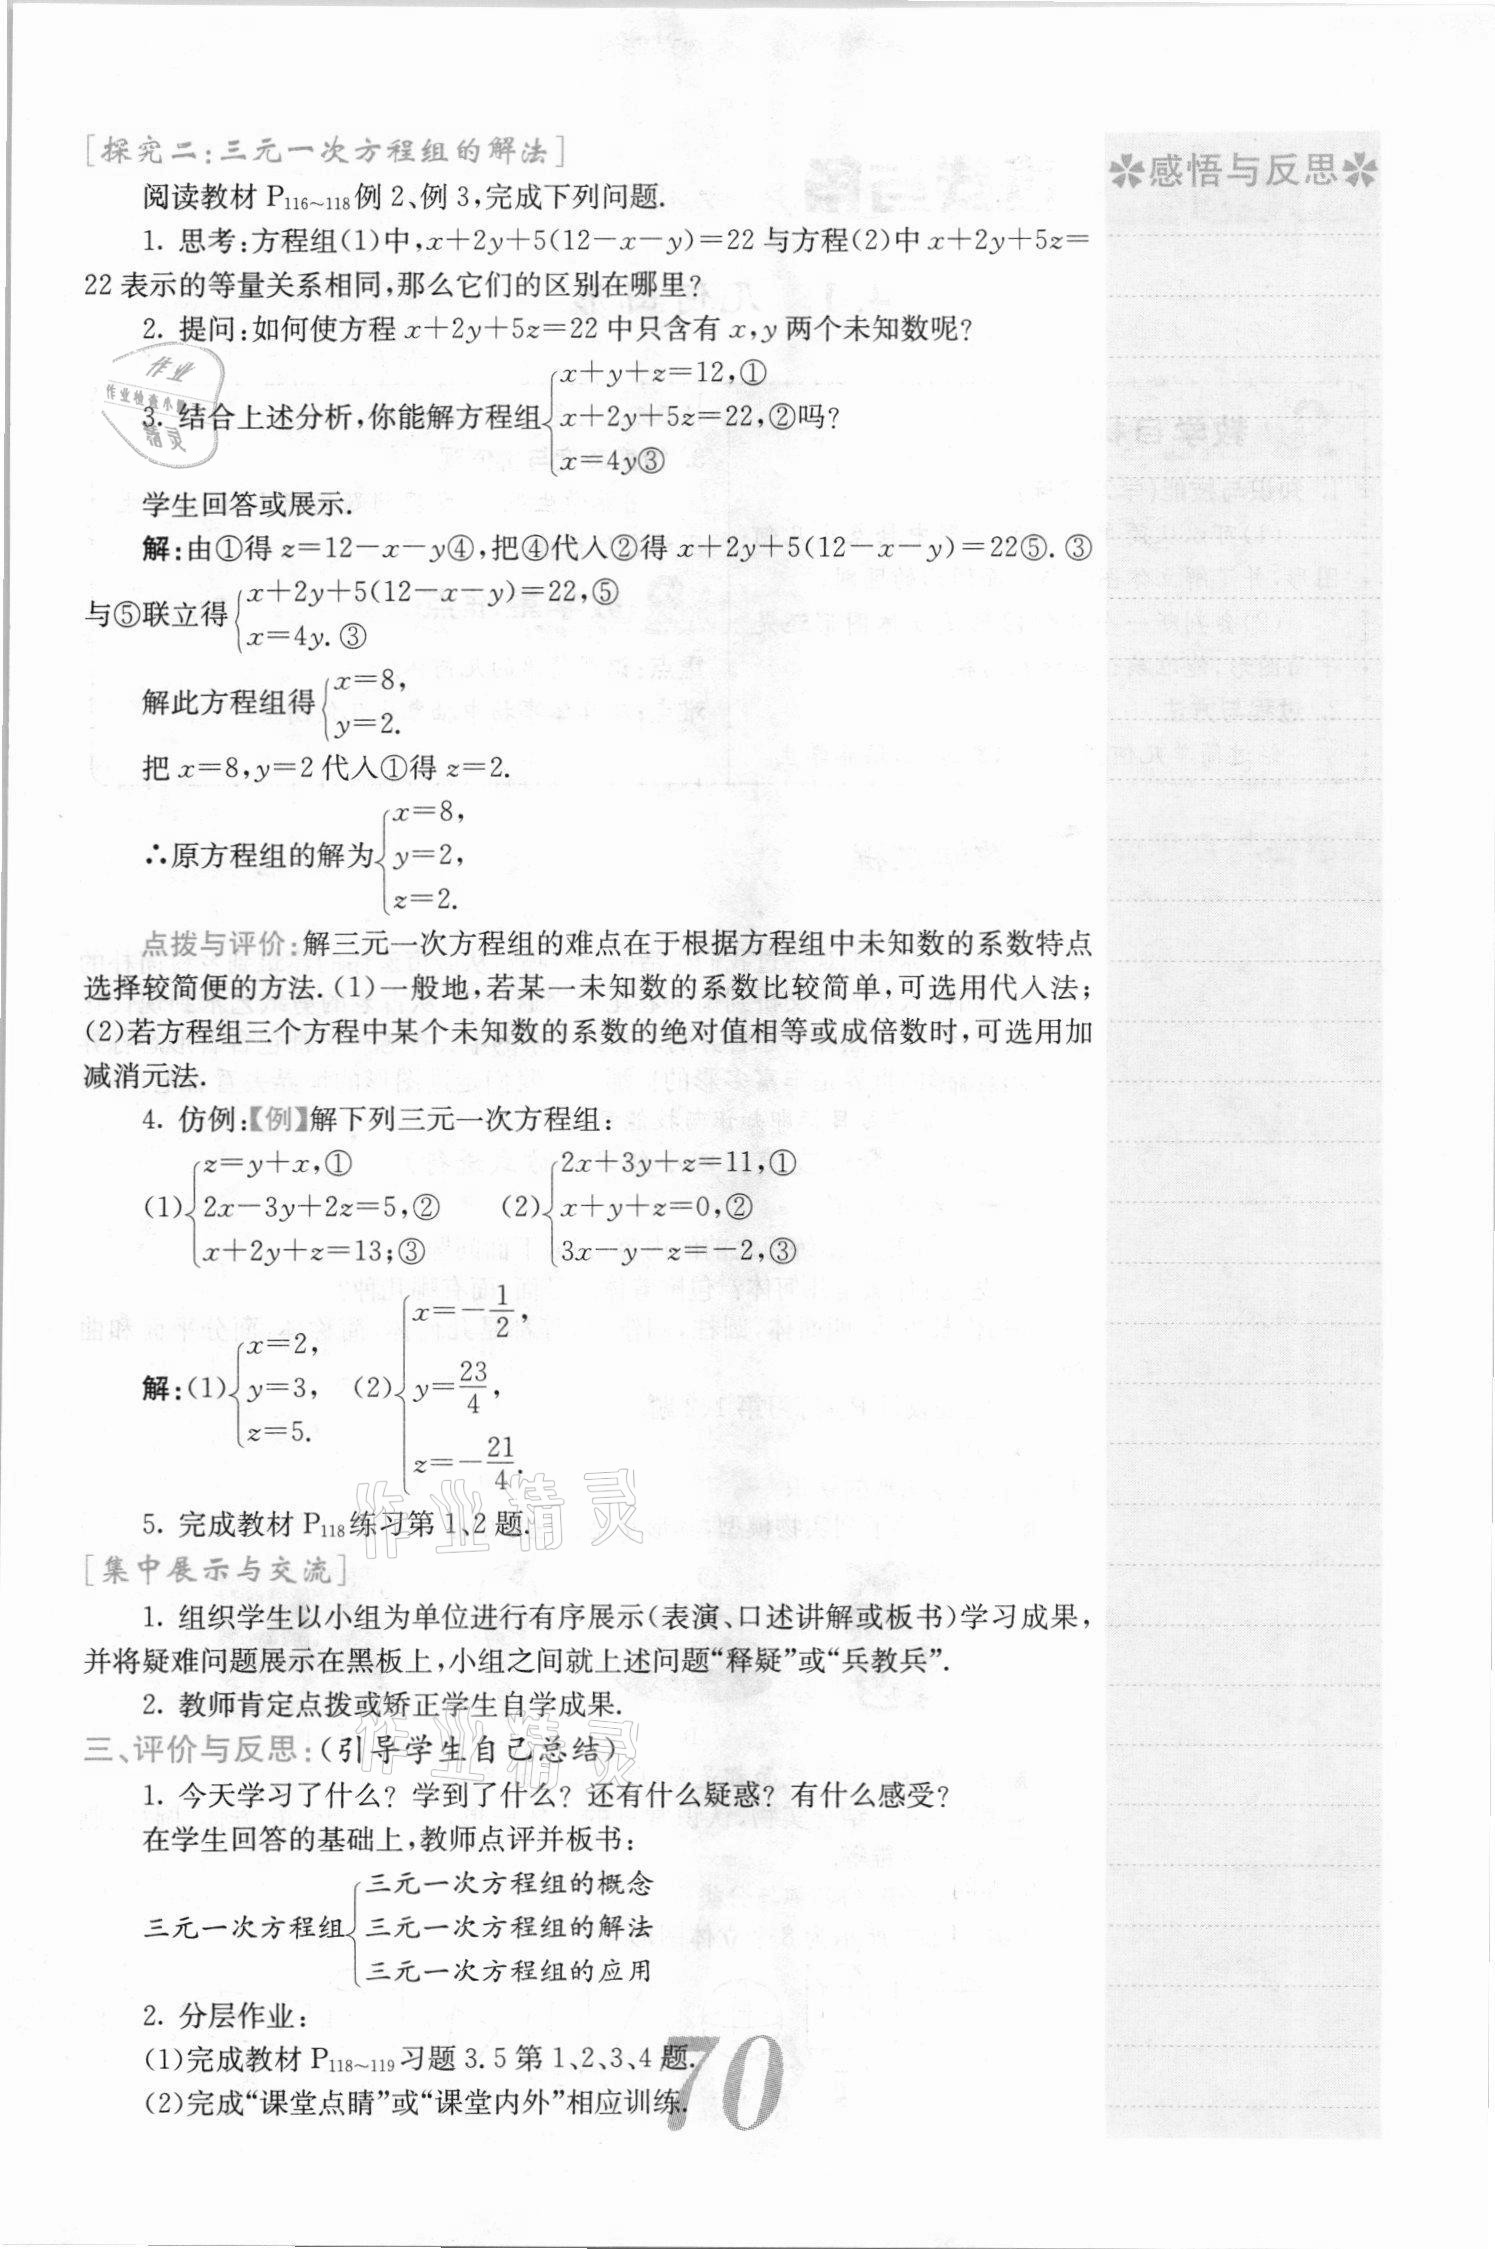 [探究二:三元一次方程组的解法]
✽感悟与反思✽
阅读教材 P₁₁₆~₁₁₈例 2、例 3,完成下列问题.
1. 思考:方程组(1)中,x+2y+5(12-x-y)=22 与方程(2)中 x+2y+5z=
22 表示的等量关系相同,那么它们的区别在哪里?
2. 提问:如何使方程 x+2y+5z=22 中只含有 x,y 两个未知数呢?
x+y+z=12,①
3. 结合上述分析,你能解方程组{x+2y+5z=22,②吗?
x=4y③
学生回答或展示.
解:由①得 z=12-x-y④,把④代入②得 x+2y+5(12-x-y)=22⑤. ③
x+2y+5(12-x-y)=22,⑤
与⑤联立得{
x=4y. ③
x=8,
解此方程组得{
y=2.
把 x=8,y=2 代入①得 z=2.
x=8,
∴原方程组的解为{y=2,
z=2.
点拨与评价:解三元一次方程组的难点在于根据方程组中未知数的系数特点
选择较简便的方法.(1)一般地,若某一未知数的系数比较简单,可选用代入法;
(2)若方程组三个方程中某个未知数的系数的绝对值相等或成倍数时,可选用加
减消元法.
4. 仿例:【例】解下列三元一次方程组:
z=y+x,① 2x+3y+z=11,①
(1){2x-3y+2z=5,② (2){x+y+z=0,②
x+2y+z=13;③ 3x-y-z=-2,③
x=2, x=-1/2,
解:(1){y=3, (2){y=23/4,
z=5. z=-21/4.
5. 完成教材 P₁₁₈练习第 1、2 题.
[集中展示与交流]
1. 组织学生以小组为单位进行有序展示(表演、口述讲解或板书)学习成果,
并将疑难问题展示在黑板上,小组之间就上述问题“释疑”或“兵教兵”.
2. 教师肯定点拨或矫正学生自学成果.
三、评价与反思:(引导学生自己总结)
1. 今天学习了什么? 学到了什么? 还有什么疑惑? 有什么感受?
在学生回答的基础上,教师点评并板书:
三元一次方程组的概念
三元一次方程组{三元一次方程组的解法
三元一次方程组的应用
2. 分层作业:
(1)完成教材 P₁₁₈~₁₁₉习题 3.5 第 1、2、3、4 题.
(2)完成“课堂点睛”或“课堂内外”相应训练.
70
作业
作业检查小
精灵
作业精灵
作业精灵